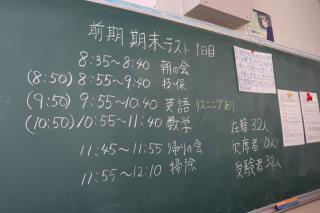 前期 期末テスト 1日目
8:35〜8:40 朝の会
(8:50) 8:55〜9:40 技・保
(9:50) 9:55〜10:40 英語 リスニングあり
(10:50) 10:55〜11:40 数学
11:45〜11:55 帰りの会
11:55〜12:10 掃除
在籍 32人
欠席者 0人
受験者 32人